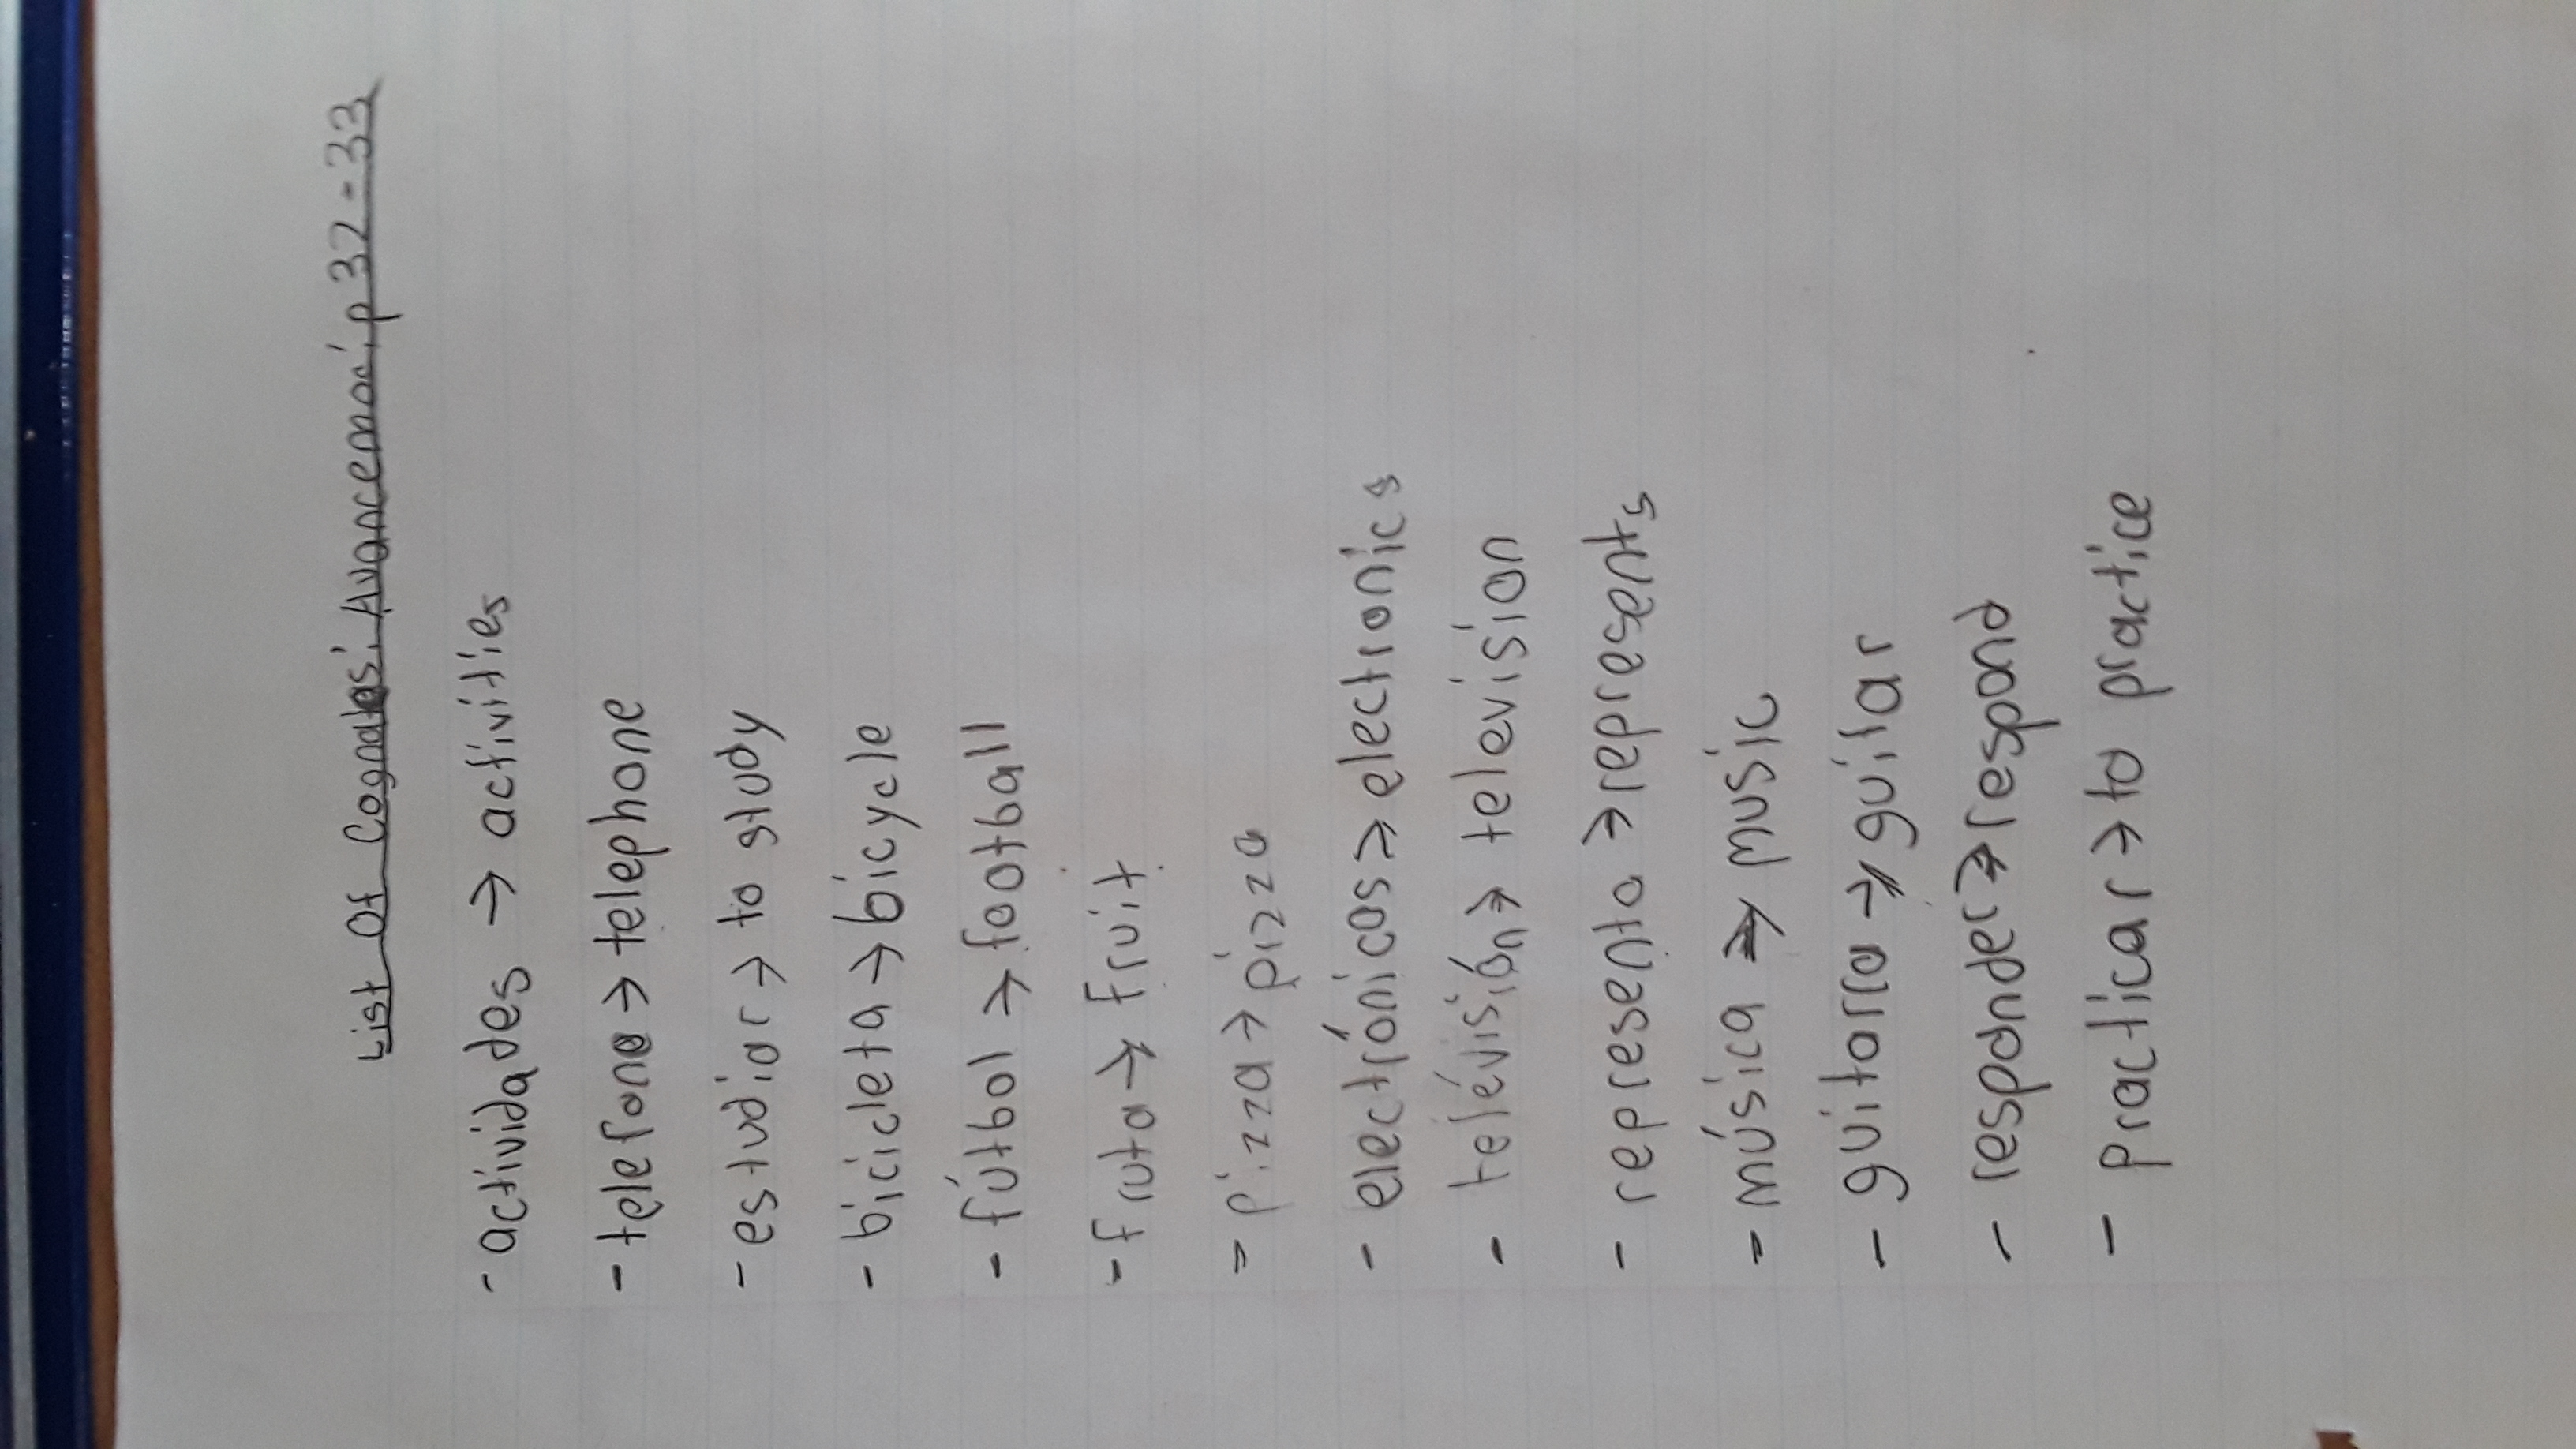 List Of Cognates: Avancemos: p 32-33
- actividades → activities
- telefono → telephone
- estudiar → to study
- bicicleta → bicycle
- fútbol → football
- fruta → fruit
- pizza → pizza
- electrónicos → electronics
- telévisión → television
- representa → represents
- música → music
- guitarra → guitar
- responder → respond
- practicar → to practice